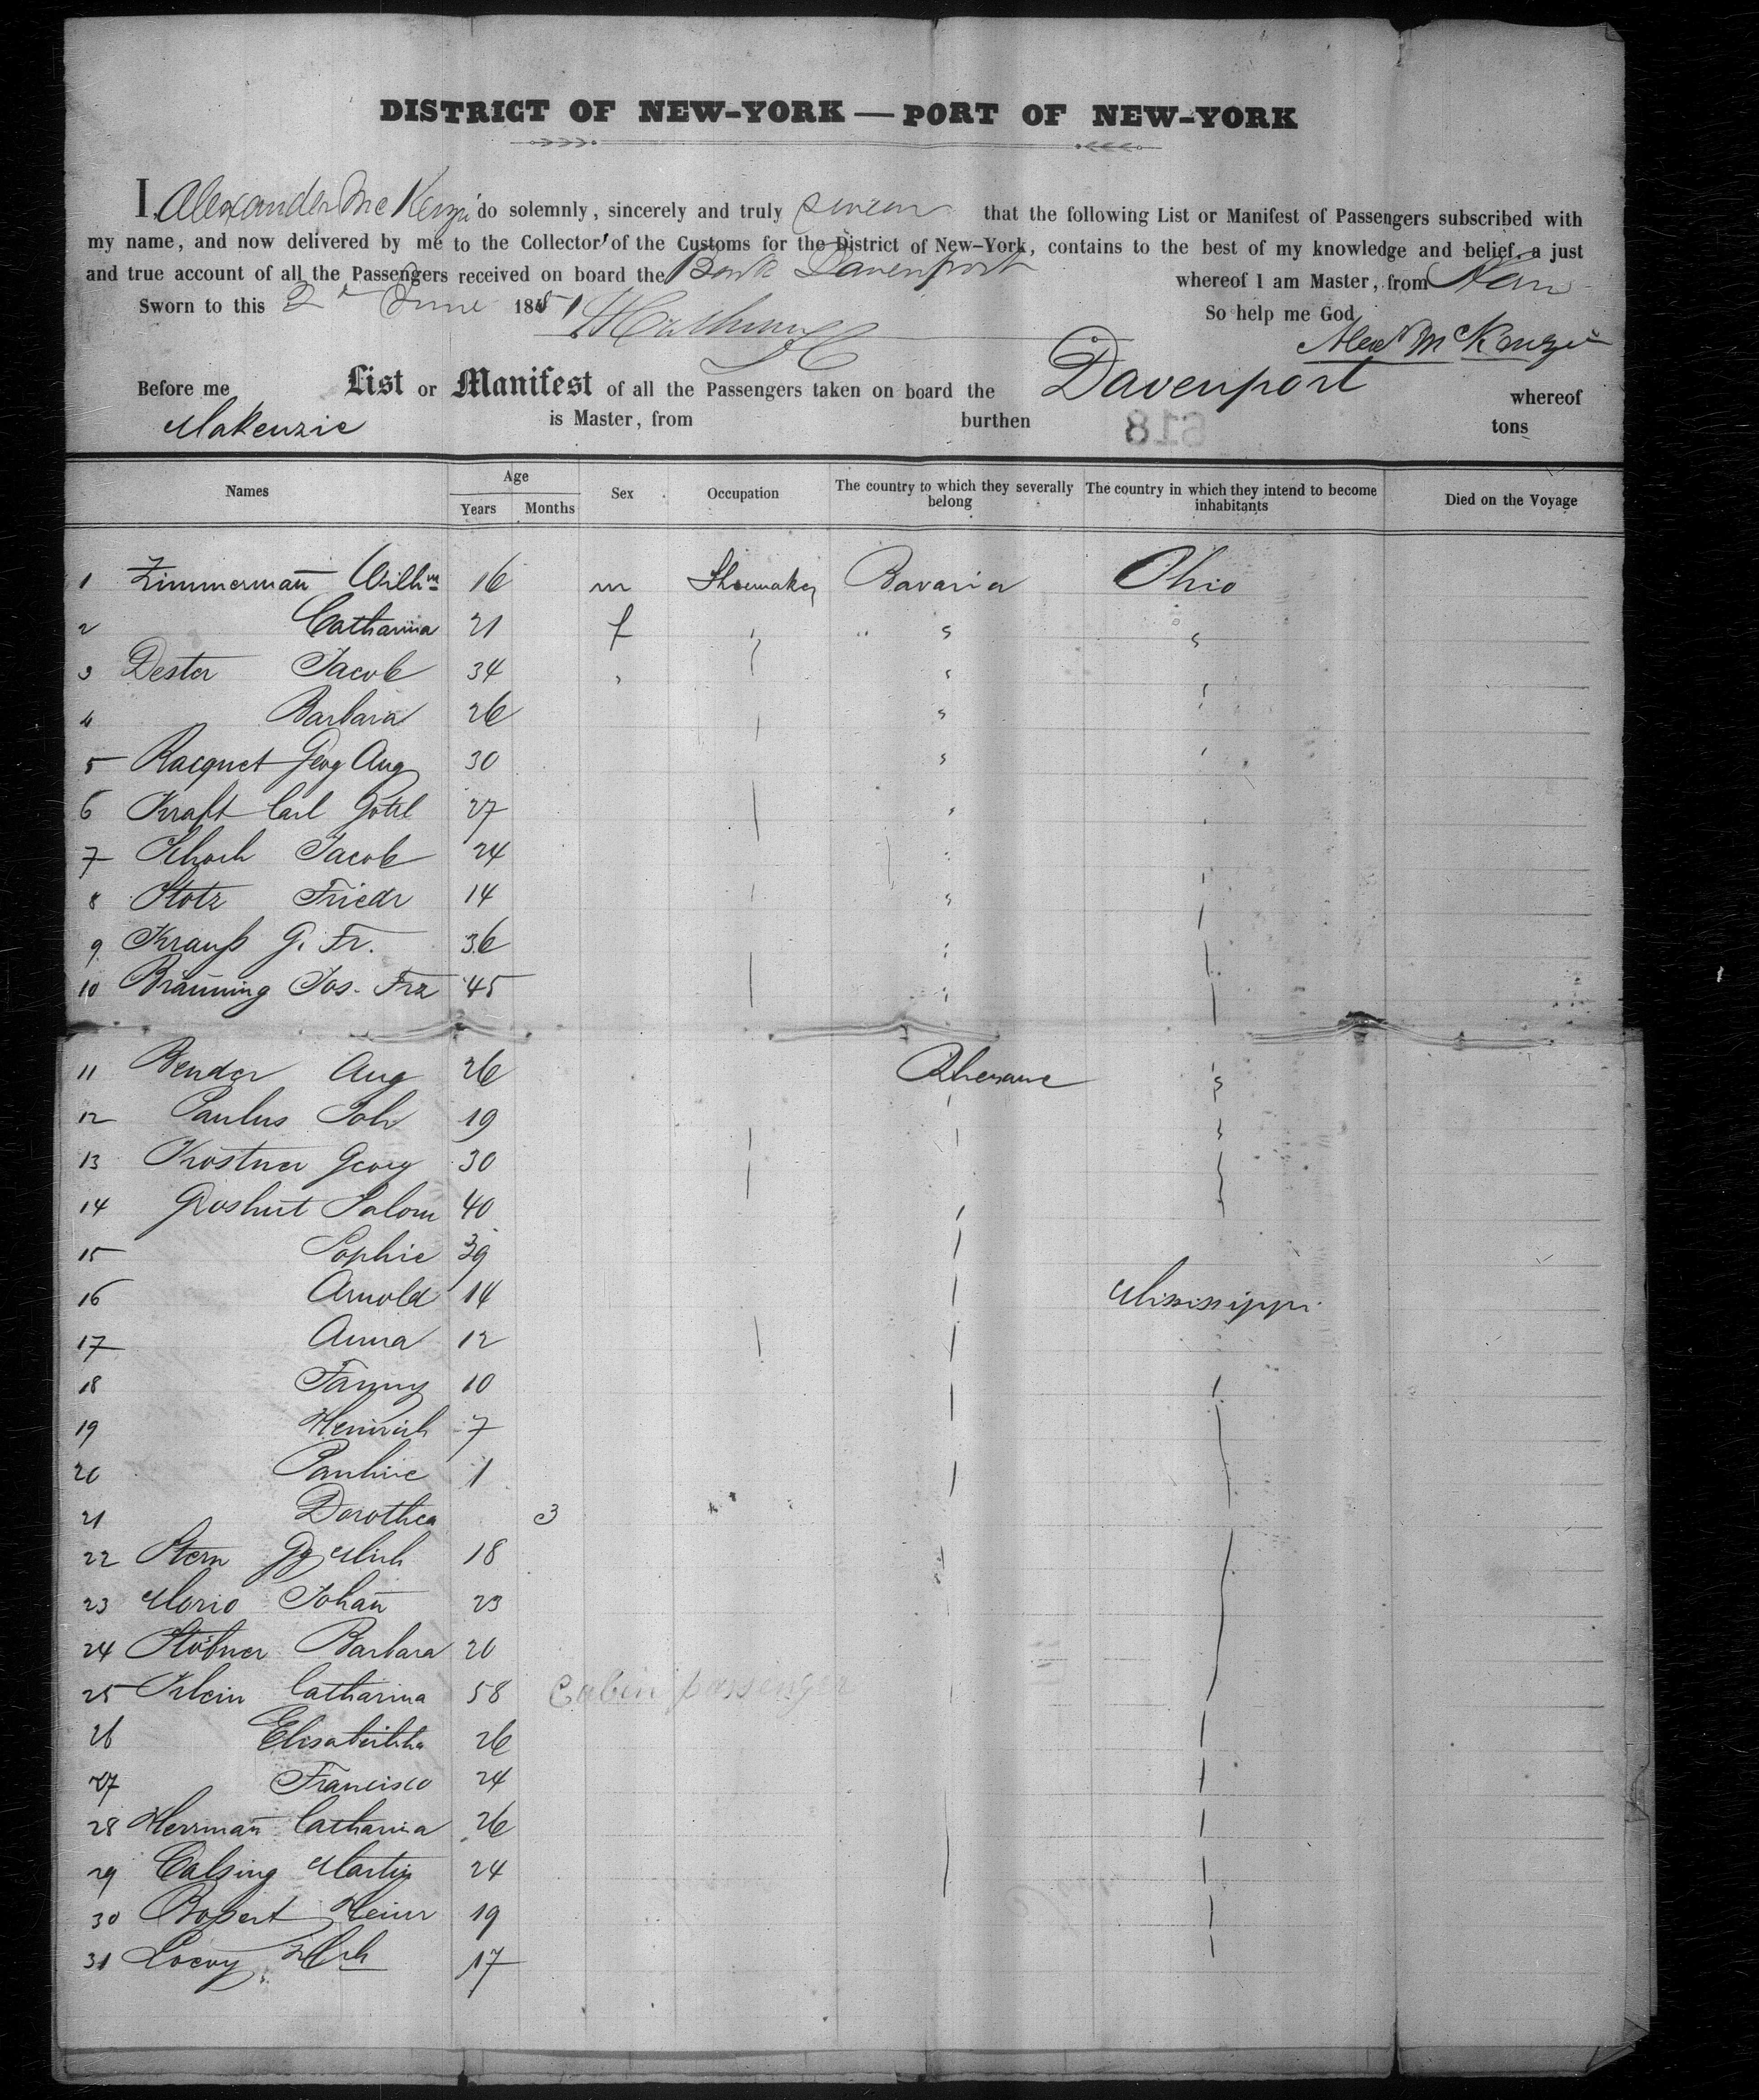 DISTRICT OF NEW-YORK — PORT OF NEW-YORK
I, Alexander McKenzie do solemnly, sincerely and truly swear that the following List or Manifest of Passengers subscribed with
my name, and now delivered by me to the Collector of the Customs for the District of New-York, contains to the best of my knowledge and belief, a just
and true account of all the Passengers received on board the Bark Davenport whereof I am Master, from
Sworn to this 2d June 1851 So help me God
Alexr McKenzie
Before me List or Manifest of all the Passengers taken on board the Davenport whereof
Makenzie is Master, from burthen tons
618
Names Age Sex Occupation The country to which they severally belong The country in which they intend to become inhabitants Died on the Voyage
Years Months
1 Zimmermañ Wilhm 16 m Shoemaker Bavaria Ohio
2 Catharina 21 f " " "
3 Dester Jacob 34
4 Barbara 26
5 Racquet Georg Aug 30
6 Kraft Carl Gottl 27
7 Schoch Jacob 24
8 Stotz Friedr 14
9 Krauß G. Fr. 36
10 Bräuning Jos. Frz 45
11 Bender Aug 26
12 Paulus Joh 19
13 Kostner Georg 30
14 Salom 40
15 Sophie 39
16 Arnold 14 Mississippi
17 Anna 12
18 Fanny 10
19 Heinrich 7
20 Pauline 1
21 Dorothea 3
22 Stern Gg Mich 18
23 Morio Johañ 23
24 Barbara 20
25 Klein Catharina 58 Cabin passenger
26 Elisabeitha 26
27 Francisco 24
28 Herrmañ Catharina 26
29 Calsing Martin 24
30 Bopert Heinr 19
31 17